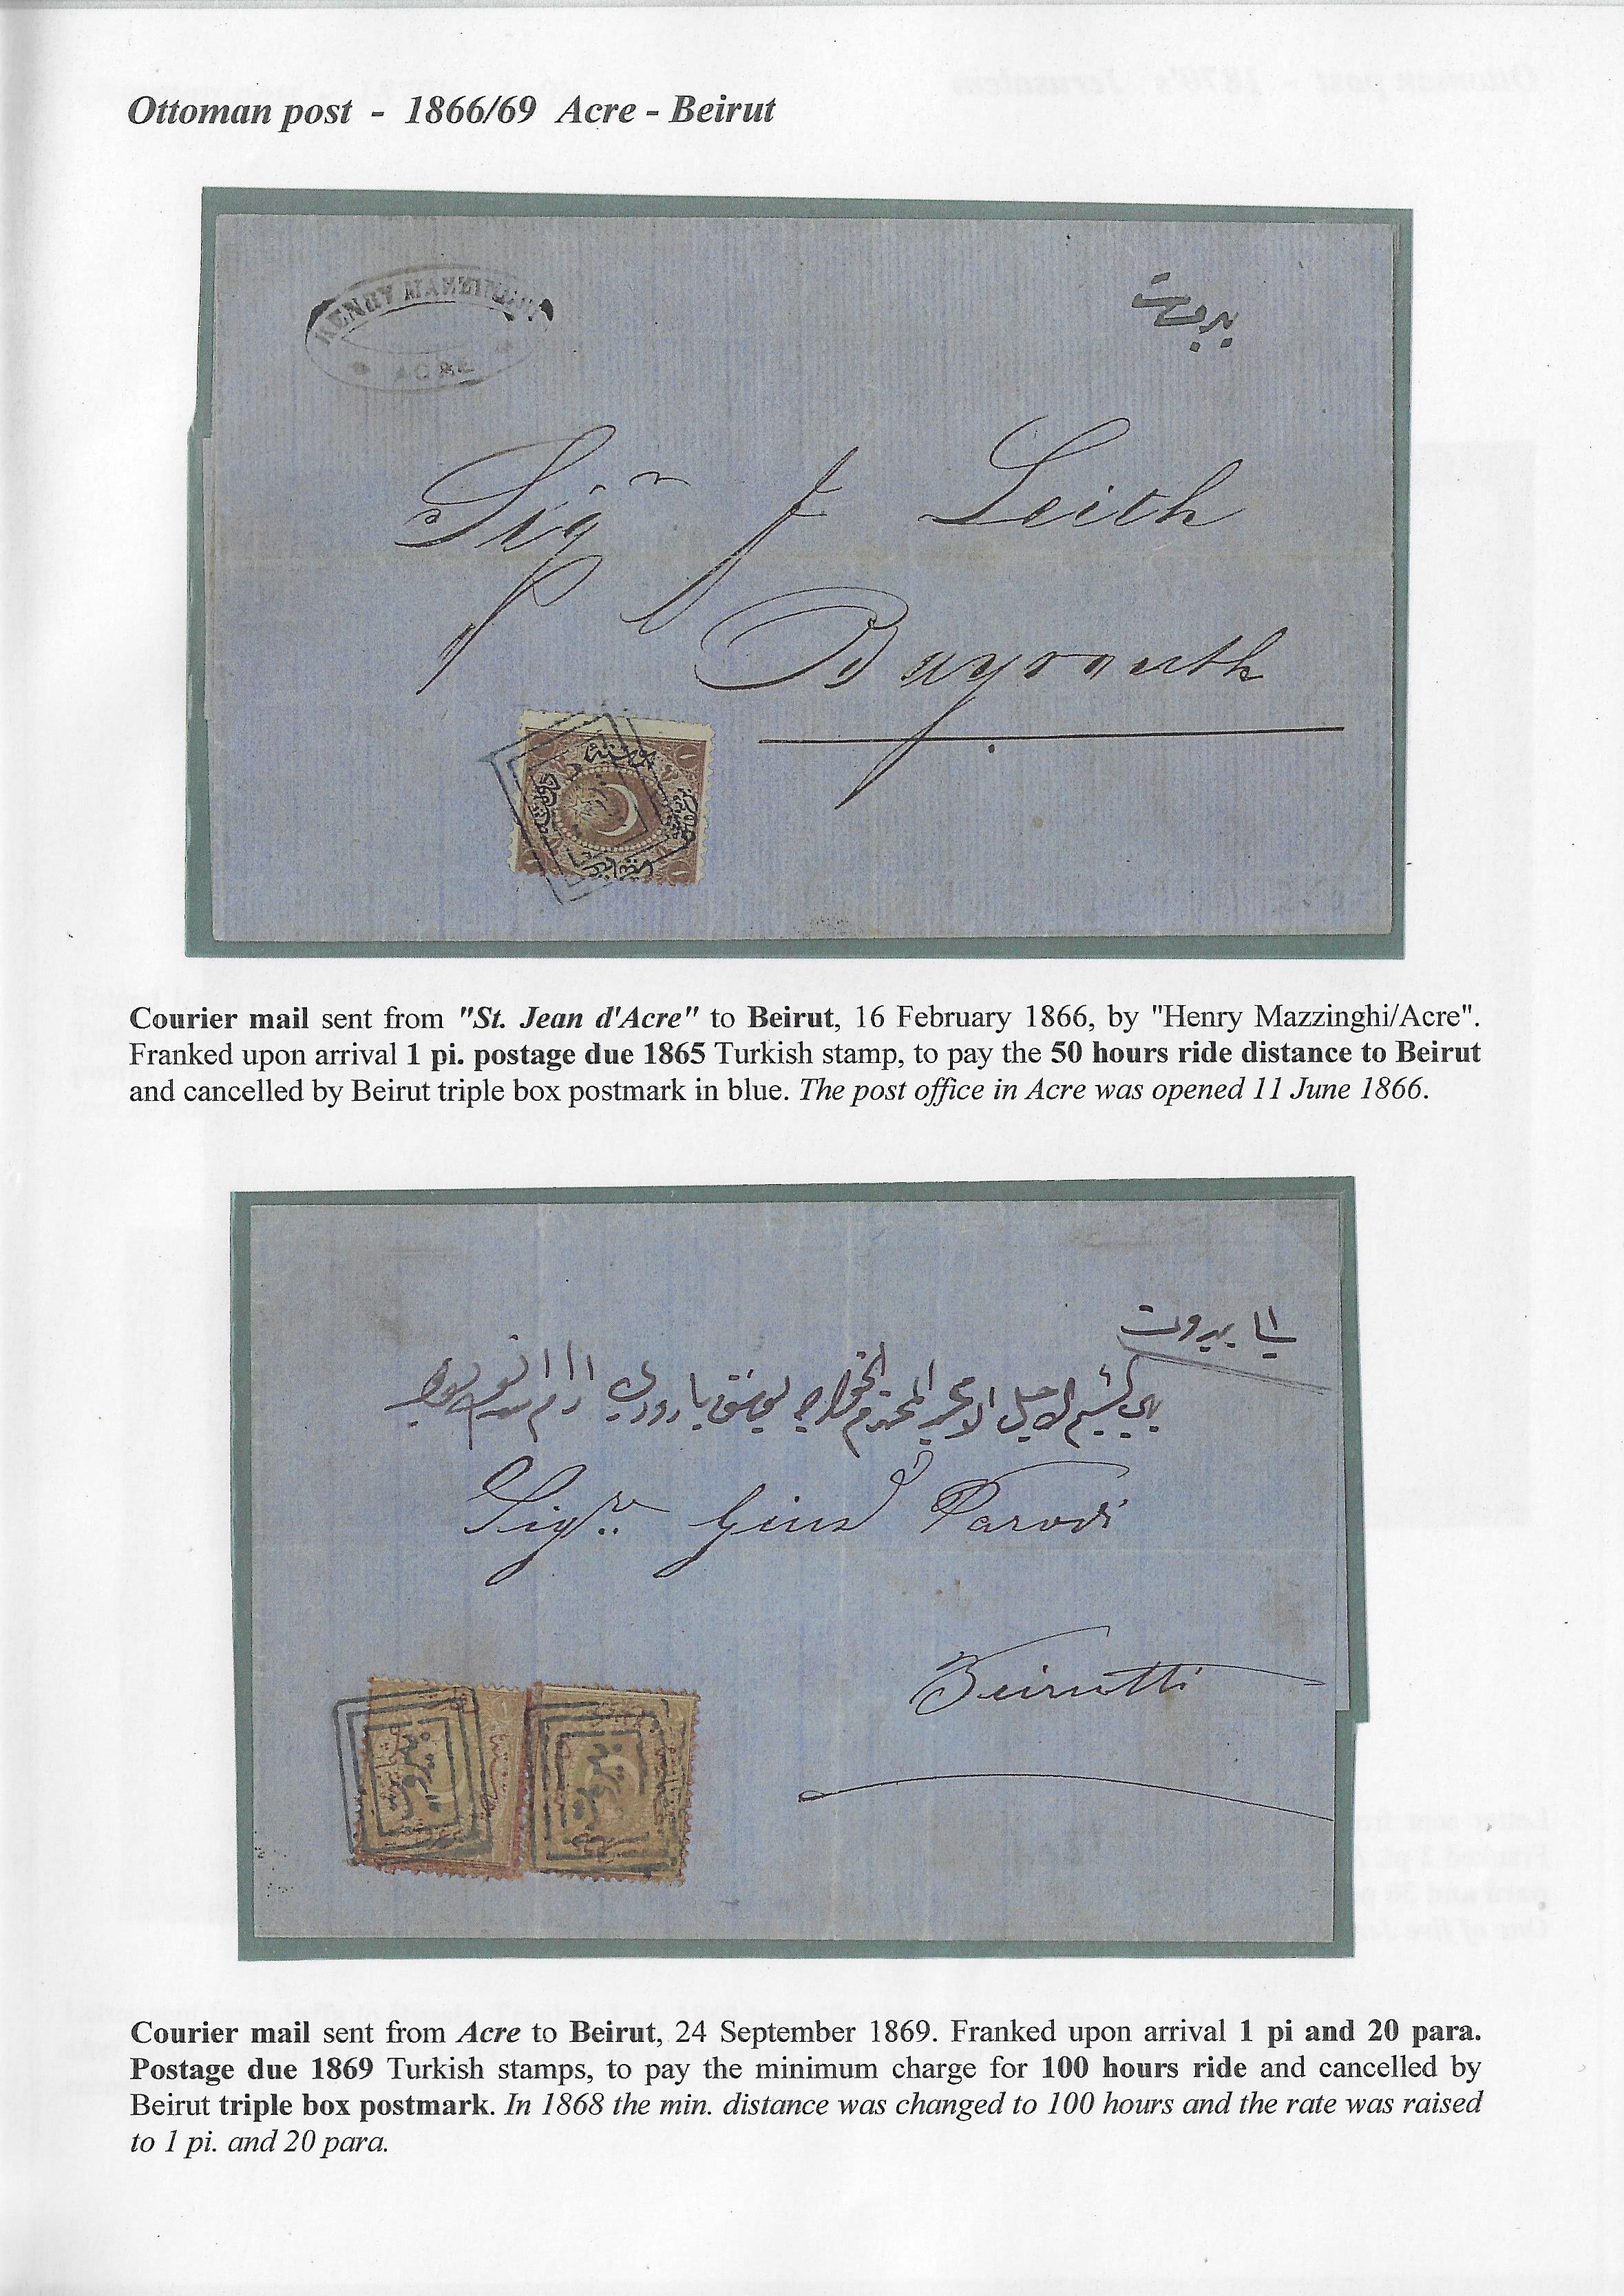 Ottoman post - 1866/69 Acre - Beirut
HENRY MAZZINGHI
ACRE
بيروت
Sigr J Leith
Bayrouth
Courier mail sent from "St. Jean d'Acre" to Beirut, 16 February 1866, by "Henry Mazzinghi/Acre".
Franked upon arrival 1 pi. postage due 1865 Turkish stamp, to pay the 50 hours ride distance to Beirut
and cancelled by Beirut triple box postmark in blue. The post office in Acre was opened 11 June 1866.
بيروت
الخواجه
Sigr. Parodi
Beirutti
Courier mail sent from Acre to Beirut, 24 September 1869. Franked upon arrival 1 pi and 20 para.
Postage due 1869 Turkish stamps, to pay the minimum charge for 100 hours ride and cancelled by
Beirut triple box postmark. In 1868 the min. distance was changed to 100 hours and the rate was raised
to 1 pi. and 20 para.